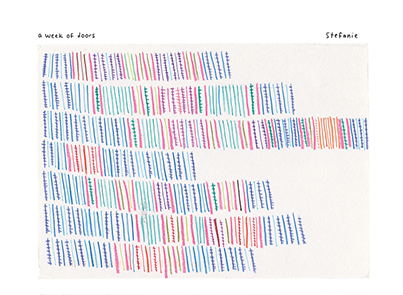 a week of doors
Stefanie